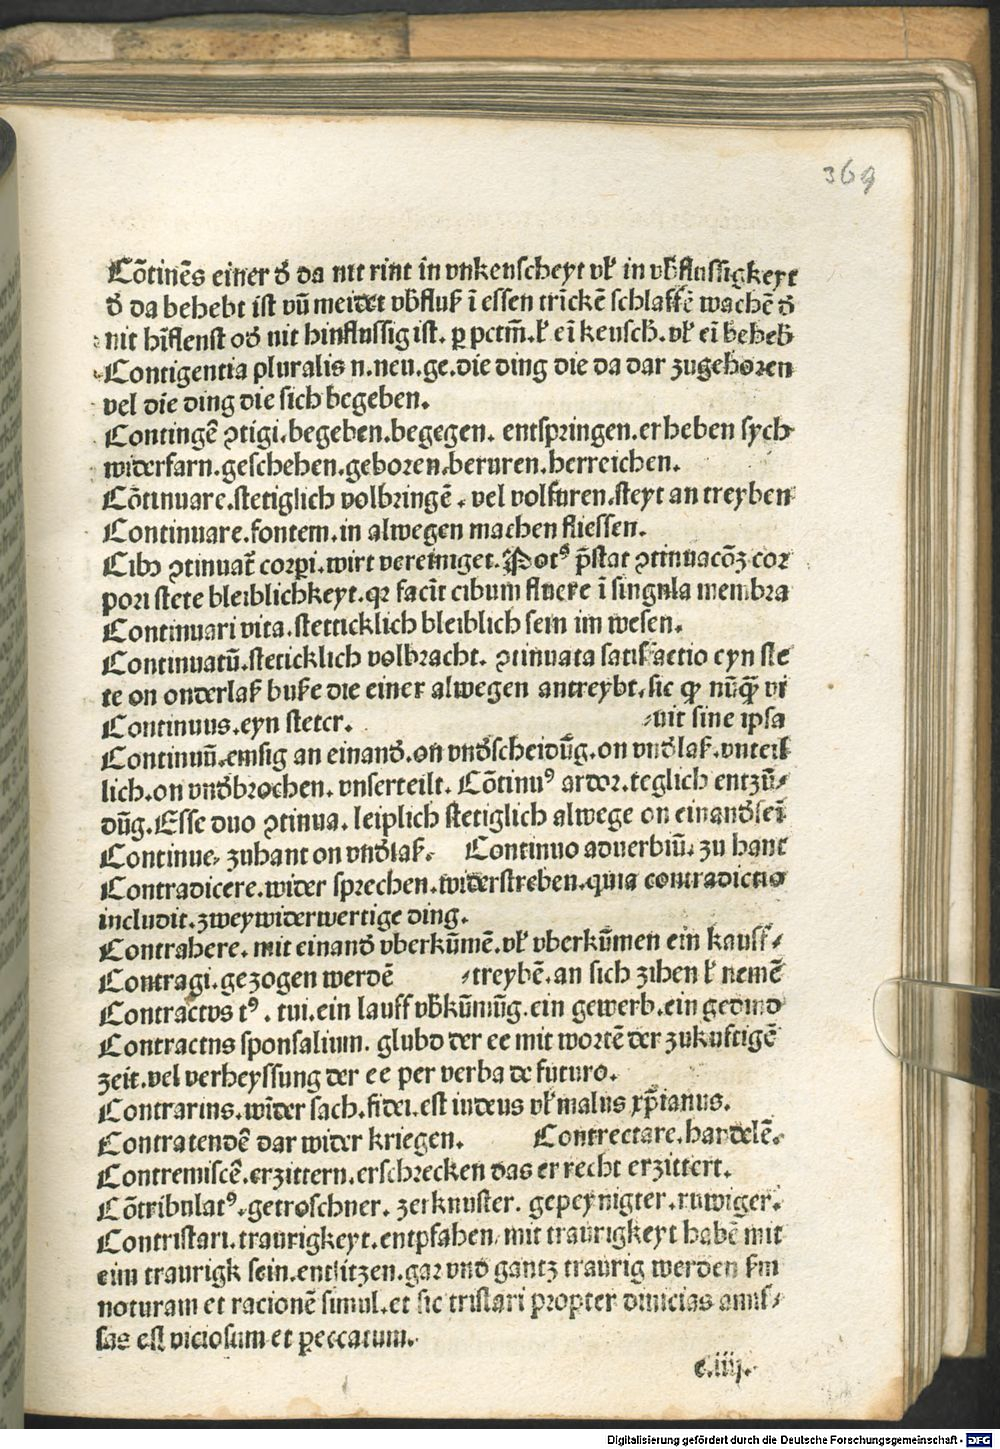 369
Cōtinēs einer d̄ da nit rint in vnkeuscheyt vl̄ in vb̄flussigkeyt
d̄ da behebt ist vn̄ meidet vb̄fluß ī essen trīckē schlaffē wachē d̄
nit hīflenst od̄ nit hinflussig ist. ꝑ pctm̄. l̄ eī keusch. vl̄ eī beheb̄
Contigentia pluralis n. neu. ge. die ding die da dar zugehoren
vel die ding die sich begeben.
Contingē ꝯtigi. begeben. begegen. entspringen. erheben sych
widerfarn. geschehen. geboren. beruren. herreichen.
Cōtinuare. stetiglich volbringē. vel volfuren. steyt an treyben
Continuare. fontem. in alwegen machen fliessen.
Cibꝰ ꝯtinuat̄ corpī. wirt vereiniget. Potꝰ p̄stat ꝯtinuacōꝫ cor
pori stete bleiblichkeyt. qꝛ facīt cibum fluere ī singula membra
Continuari vita. stetticklich bleiblich sein im wesen.
Continuatū. steticklich volbracht. ꝯtinuata satisfactio eyn ste
te on onderlaß buße die einer alwegen antreybt. sic ꝙ nūꝙ̄ vi
Continuus. eyn steter. -uit sine ipsa
Continuū. emsig an einand̄. on vnd̄scheidūg. on vnd̄laß. vnteil
lich. on vnd̄brochen. vnserteilt. Cōtinuꝰ ardor. teglich entzū-
dūg. Esse duo ꝯtinua. leiplich stetiglich alwege on einand̄ seī
Continue, zuhant on vnd̄laß. Continuo aduerbiū. zu hant
Contradicere. wider sprechen. widerstreben. quia contradictio
includit. zweywiderwertige ding.
Contrahere. mit einand̄ vberkūmē. vl̄ vberkūmen ein kauff-
Contragi. gezogen werdē -treybē. an sich zihen l̄ nemē
Contractvs tꝰ. tui. ein lauff vb̄kūmūg. ein gewerb. ein geding
Contractus sponsalium. glubd der ee mit wortē der zukuftigē
zeit. vel verheyssung der ee per verba de futuro.
Contrarius. wīder sach. fidei. est iudeus vl̄ malus xp̄ianus.
Contratendē dar wider kriegen. Contrectare. handelē.
Contremiscē. erzittern. erschrecken das er recht erzittert.
Cōtribulatꝰ. getroschner. zerknuster. gepeynigter. ruwiger.
Contristari. traurigkeyt. entpfahen, mit traurigkeyt habē mit
eim traurigk sein. entsitzen. gar vnd gantz traurig werden ßm
noturam et racionē simul. et sic tristari propter diuicias amis-
sas est viciosum et peccatum.
c.iiij.
Digitalisierung gefördert durch die Deutsche Forschungsgemeinschaft - DFG